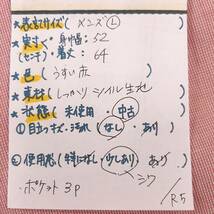 ★表記サイズ( メンズ Ⓛ )
★実寸 ・身幅: 52
(センチ) ・着丈: 64
★色 ( うすい赤 )
★素材( しっかり シェル生地 )
★状態( 未使用 ・ 中古 )
①目立つキズ・汚れ ( なし ・ あり )
②使用感( 特になし・少しあり・あり )
シワ
・ポケット 3P
/R5